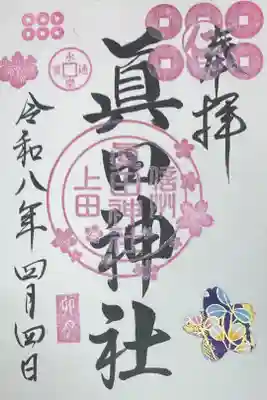 奉拝
眞田神社
信州
上田
眞田神社
永楽通寳
卯月
令和八年四月四日